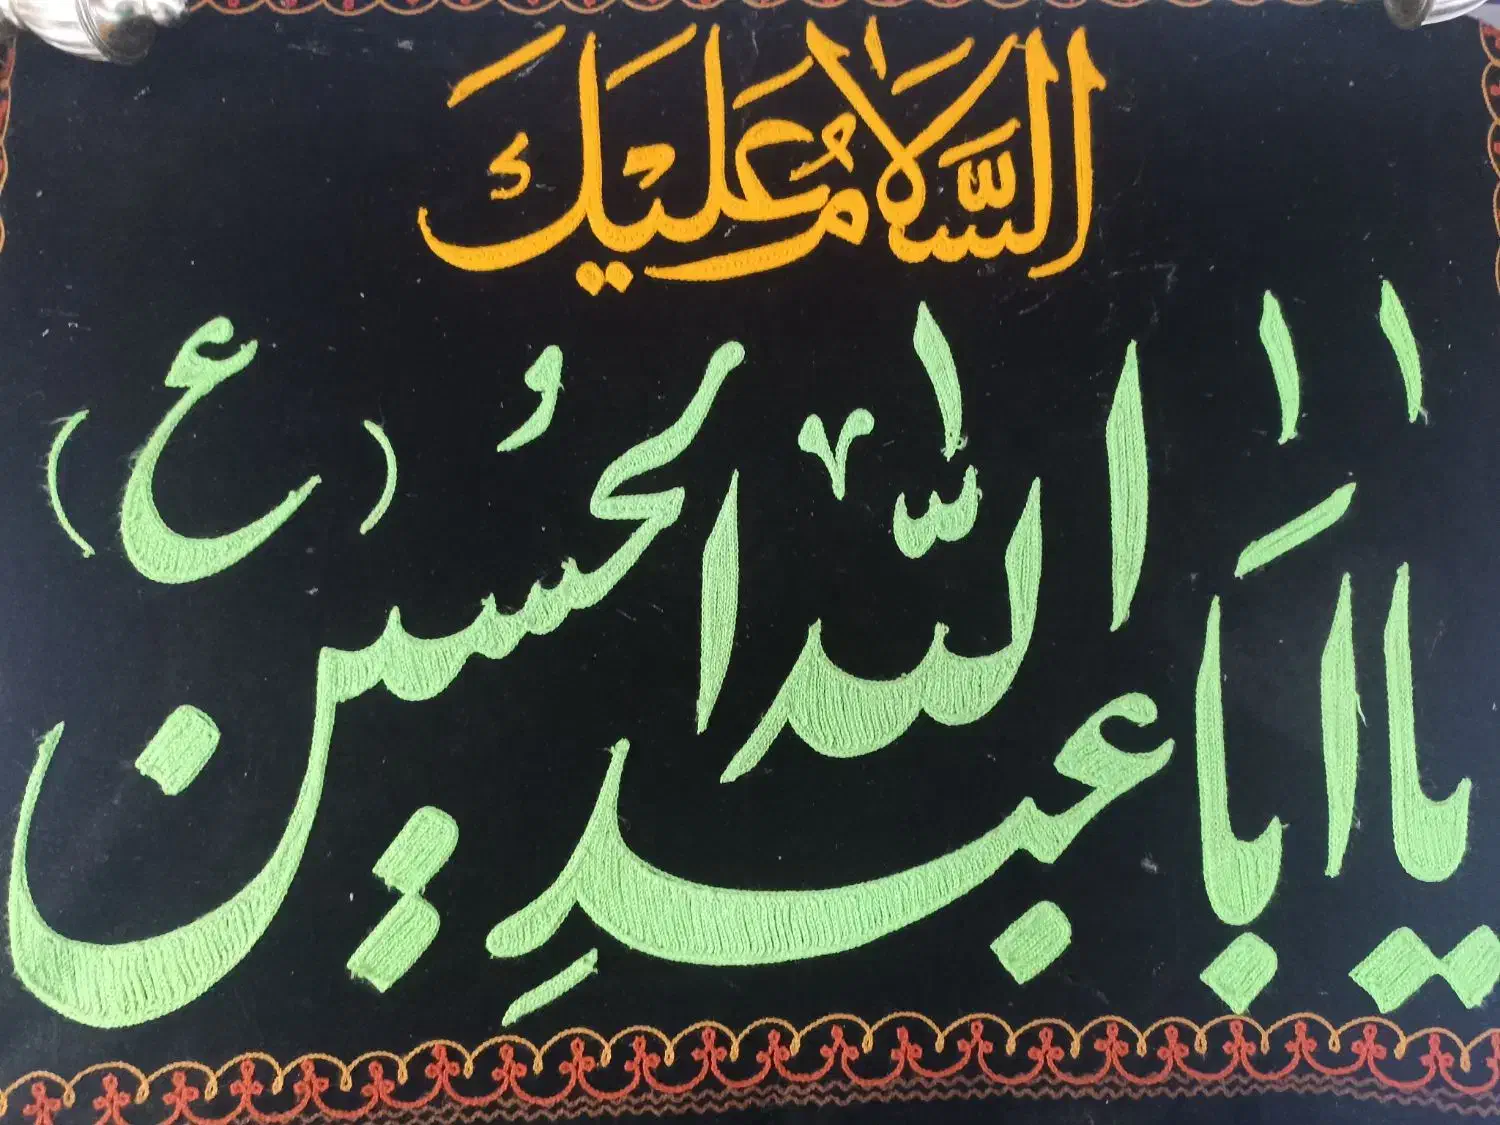 السَّلَامُ عَلَيْكَ
يا اَبا عبدِ اللّٰه الحُسین (ع)